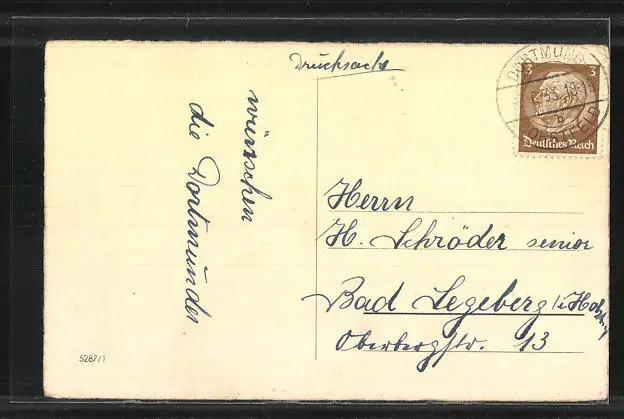 Drucksache
wünschen
die Dortmunder
DORTMUND
OESTFELD
3 3
Deutsches Reich
Herrn
H. Schröder senior
Bad Segeberg i. Holst
Oberbergstr. 13
5287/1